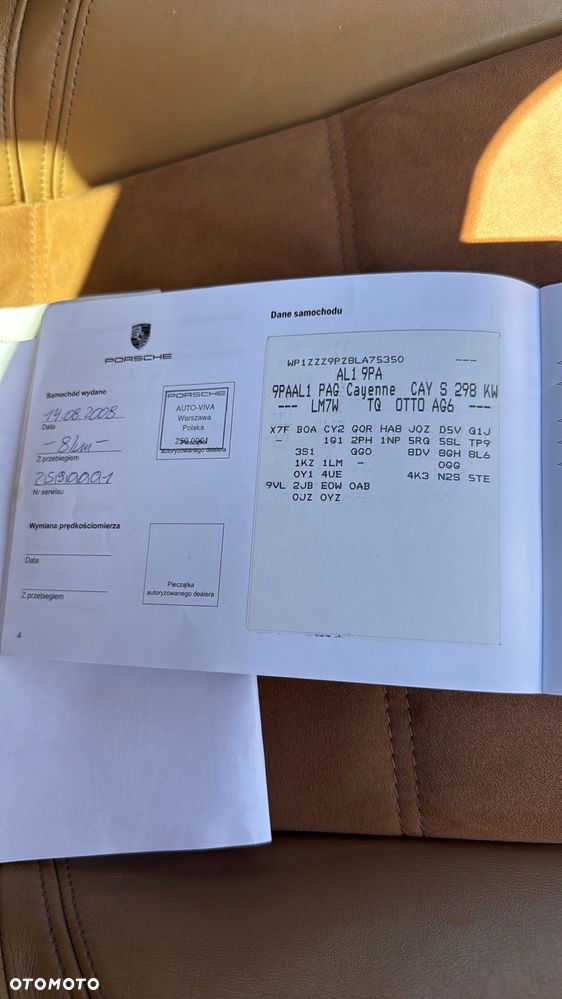 PORSCHE
Samochód wydano
14.08.2008
Data
- 8 km -
Z przebiegiem
Nr serwisu
PORSCHE
AUTO-VIVA
Warszawa
Polska
autoryzowanego dealera
Wymiana prędkościomierza
Data
Z przebiegiem
Pieczątka
autoryzowanego dealera
4
Dane samochodu
WP1ZZZ9PZ8LA75350 ---
AL1 9PA
9PAAL1 PAG Cayenne CAY S 298 KW
--- LM7W TQ OTTO AG6 ---
X7F B0A CY2 G0R HA8 J0Z D5V Q1J
- 1G1 2PH 1NP 5RQ 5SL TP9
3S1 GG0 8DV 8GH 8L6
1KZ 1LM - 0GG
0Y1 4UE 4K3 N2S 5TE
9VL 2JB E0W 0AB
0JZ 0YZ
OTOMOTO